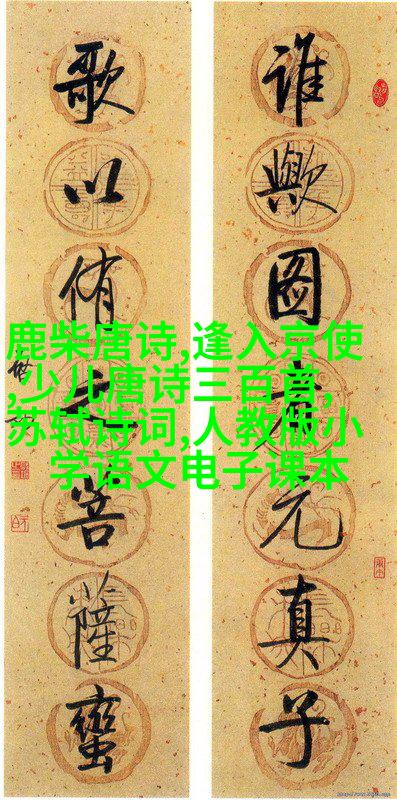 谁歟图元真子
歌以侑菩薩蠻
鹿柴唐诗,逢入京使
,少儿唐诗三百首,
苏轼诗词,人教版小
学语文电子课本